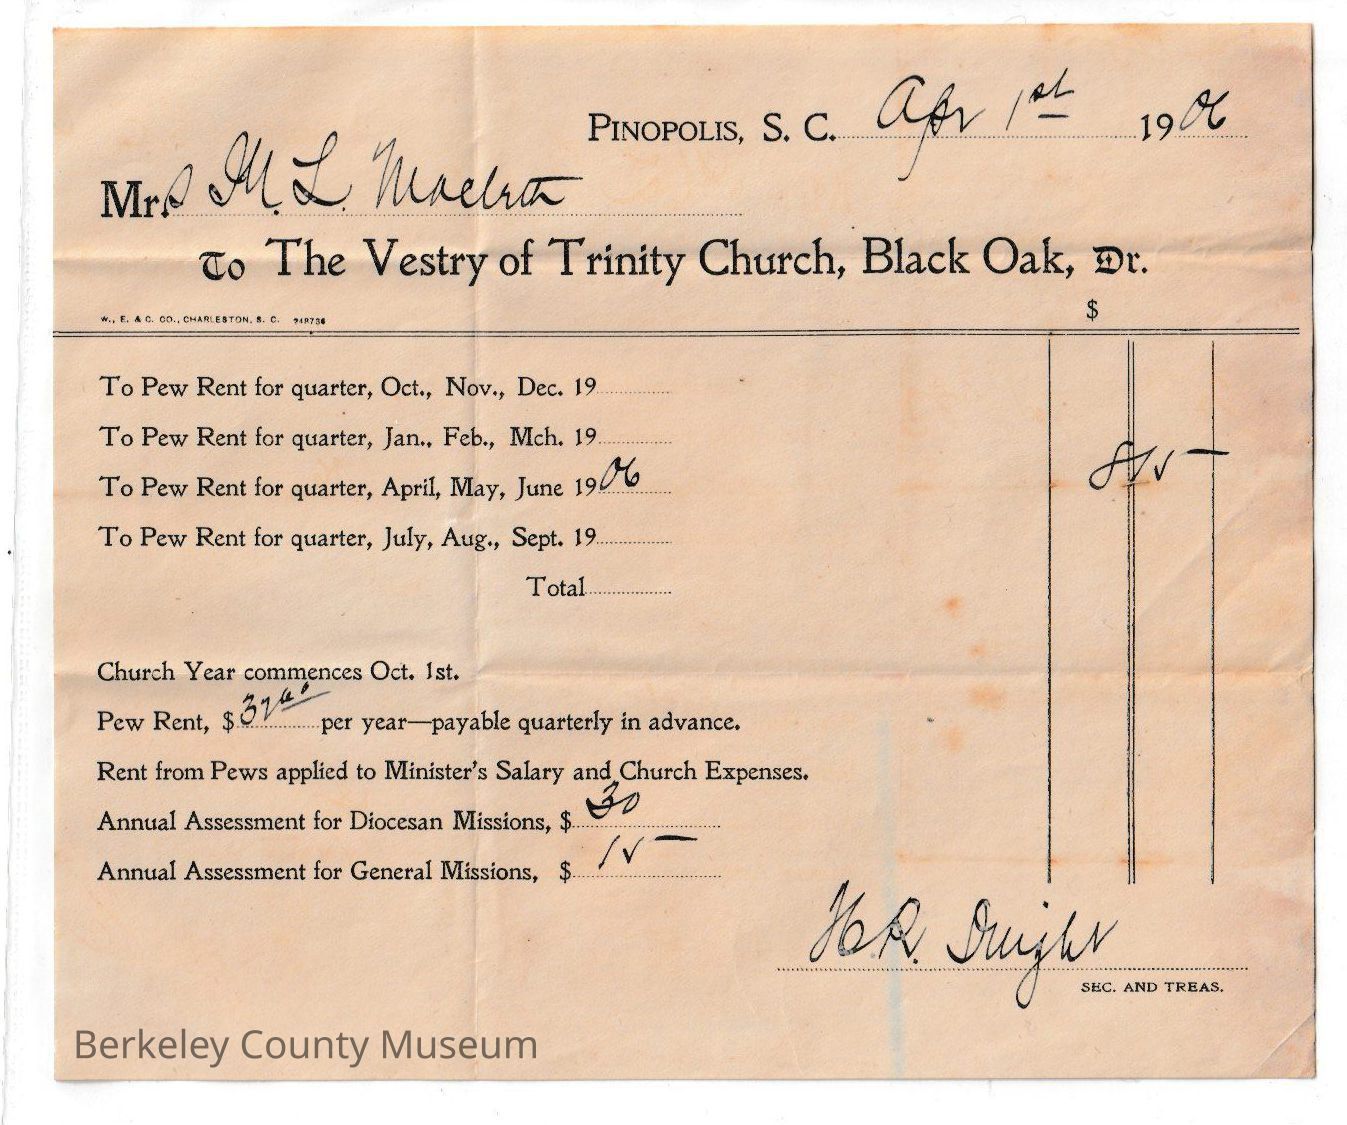 PINOPOLIS, S. C. Apr 1st 1906
Mrs M. L.
To The Vestry of Trinity Church, Black Oak, Dr.
$
W., E. & C. CO., CHARLESTON, S. C.
To Pew Rent for quarter, Oct., Nov., Dec. 19
To Pew Rent for quarter, Jan., Feb., Mch. 19
To Pew Rent for quarter, April, May, June 1906
To Pew Rent for quarter, July, Aug., Sept. 19
Total
Church Year commences Oct. 1st.
Pew Rent, $ per year—payable quarterly in advance.
Rent from Pews applied to Minister's Salary and Church Expenses.
Annual Assessment for Diocesan Missions, $ 30
Annual Assessment for General Missions, $ 15 —
H. R. Dwight
SEC. AND TREAS.
Berkeley County Museum